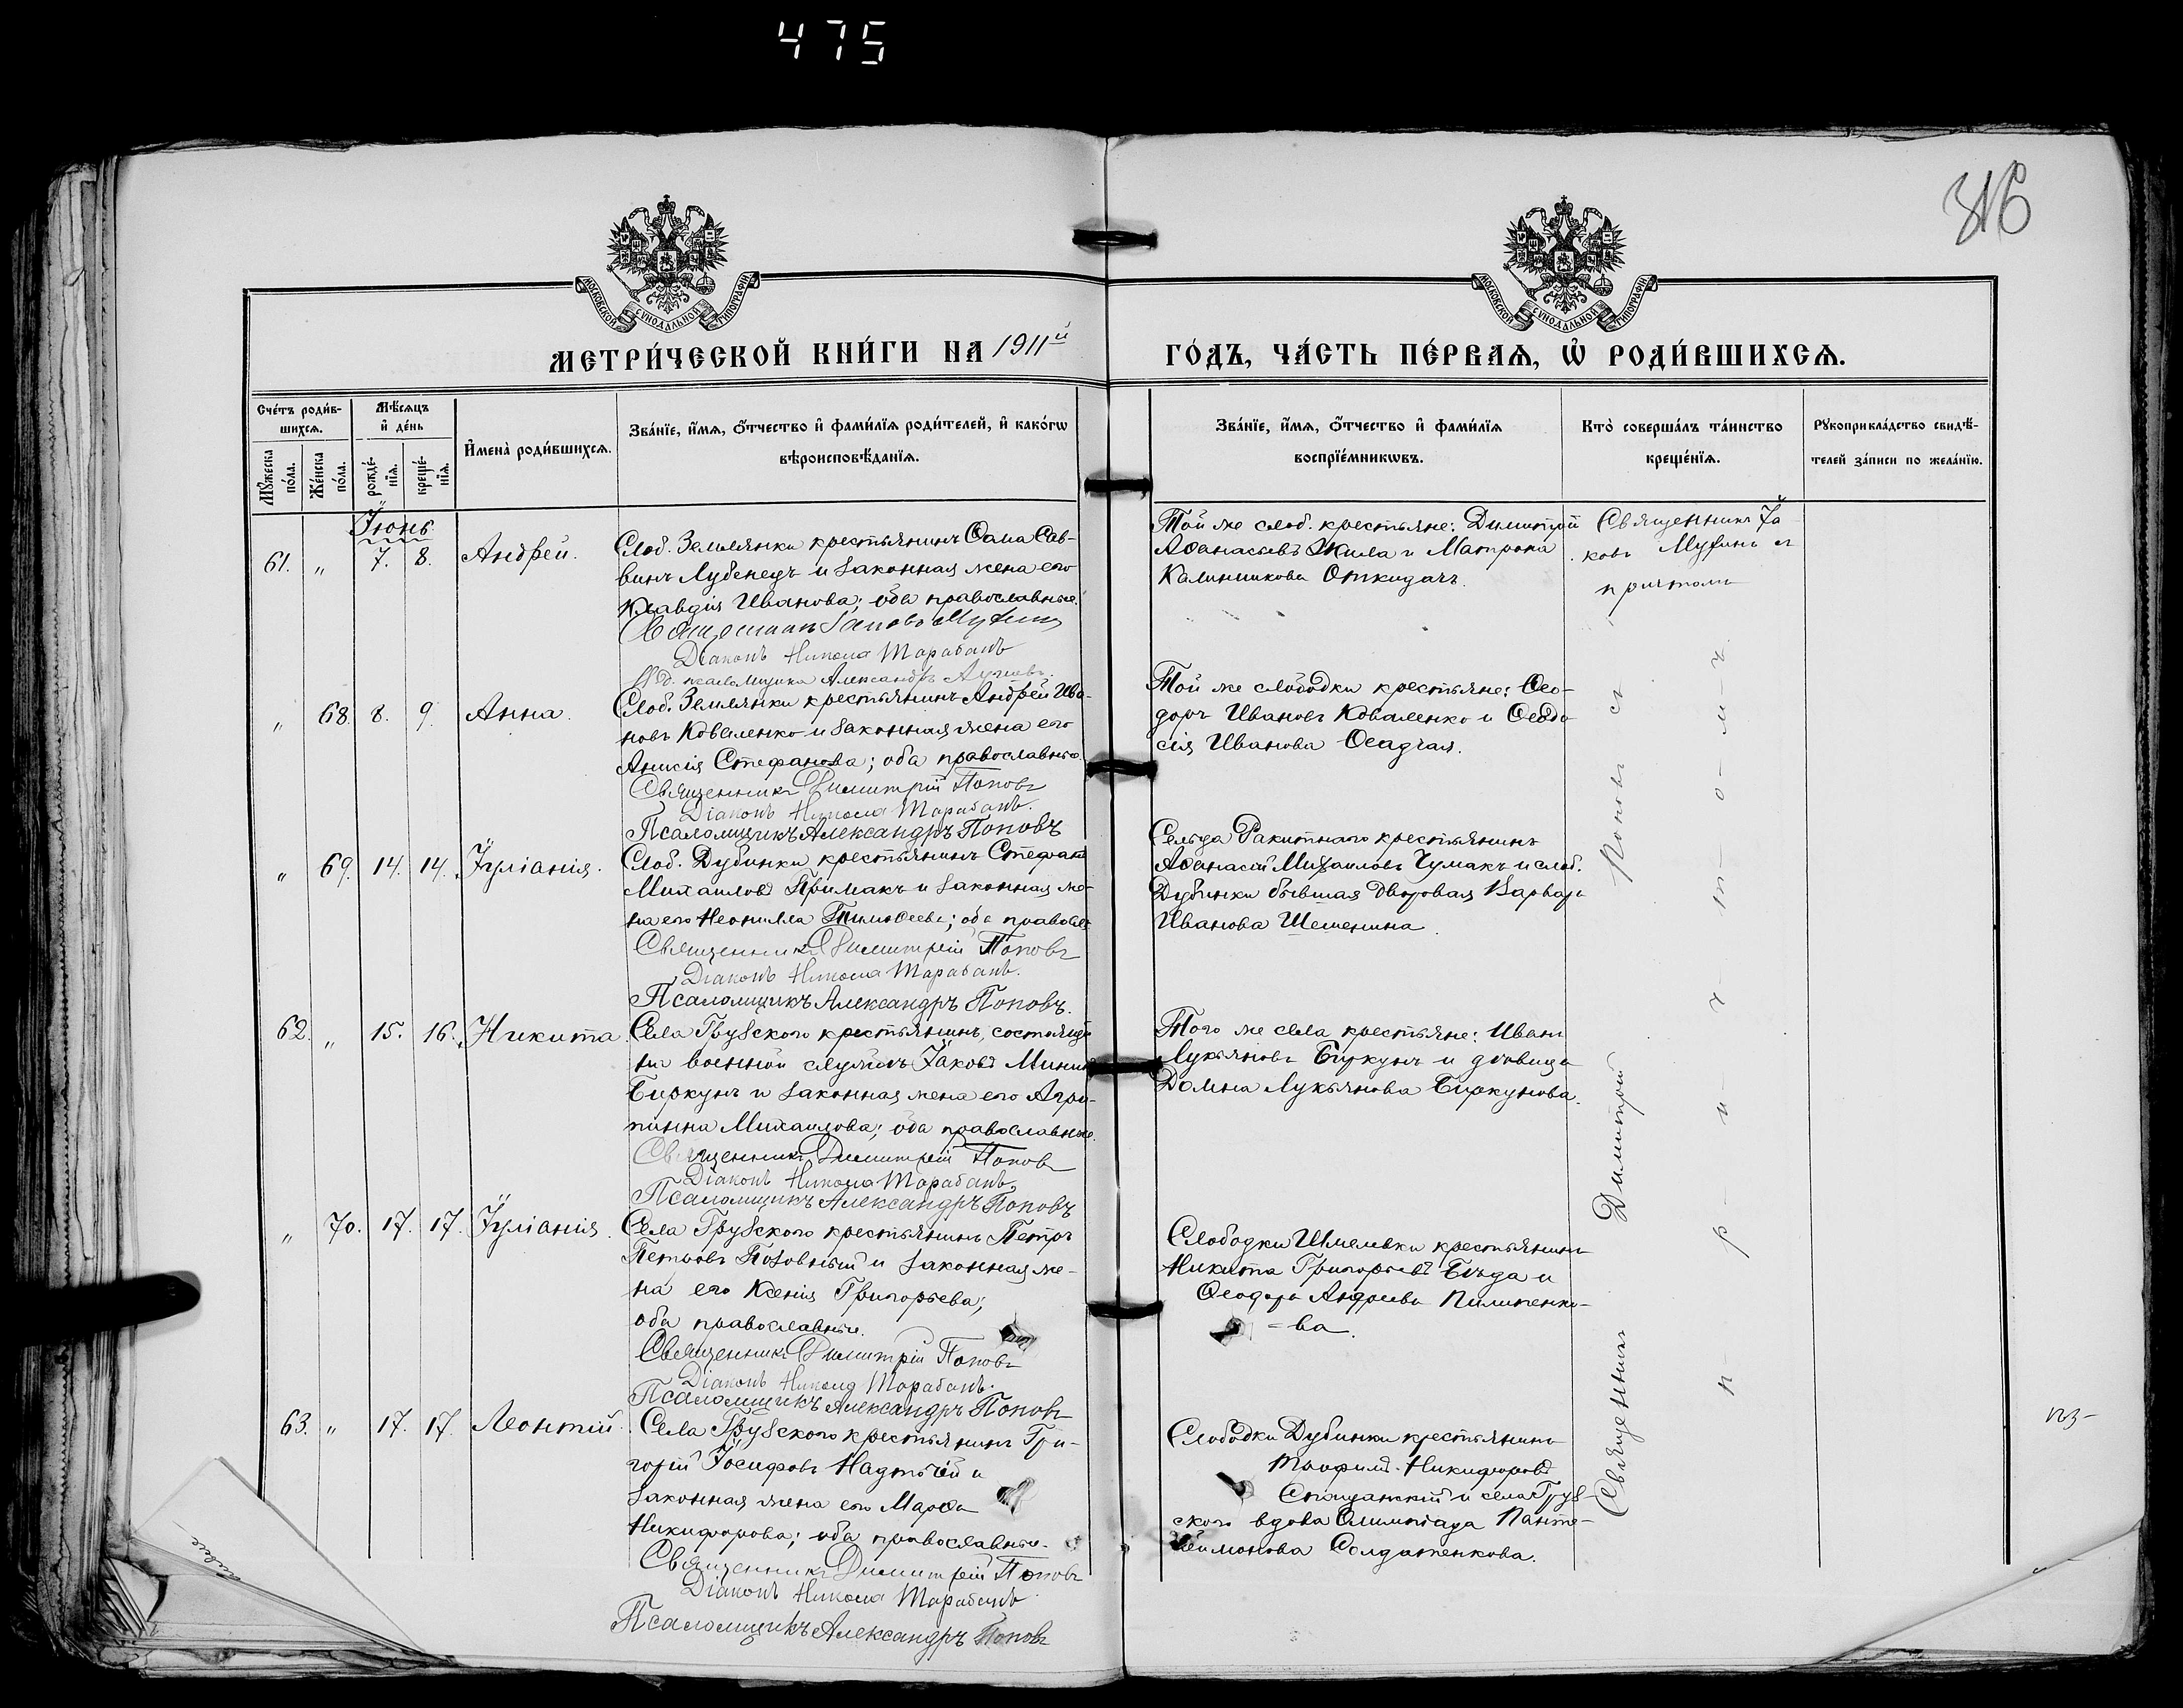 475
316
МОСКОВСКОЙ СУНОДАЛЬНОЙ ТИПОГРАФІИ
МОСКОВСКОЙ СУНОДАЛЬНОЙ ТИПОГРАФІИ
МЕТРИ́ЧЕСКОЙ КНИ́ГИ НА 1911й
ГО́ДЪ, ЧА́СТЬ ПЕ́РВАѦ, Ѡ҆ РОДИ́ВШИХСѦ.
Сче́тъ роди́в-
шихсѧ.
Мꙋ́жеска
по́ла.
Же́нска
по́ла.
Мѣ́сѧцъ
и҆ де́нь
рожде́-
нїѧ.
креще́-
нїѧ.
И҆мена̀ роди́вшихсѧ.
Зва́нїе, и҆́мѧ, ѻ҆́тчество и҆ фами́лїѧ роди́телей, и҆ како́гѡ
вѣроисповѣ́данїѧ.
Зва́нїе, и҆́мѧ, ѻ҆́тчество и҆ фами́лїѧ
воспрїе́мникѡвъ.
Кто̀ соверша́лъ та́инство
креще́нїѧ.
Рꙋкоприкла́дство свидѣ́-
телей за́писи по жела́нїю.
Іюнь
61. „ 7. 8. Андрей.
Слоб. Землянки крестьянинъ Ѳома Сав-
винъ Лубенецъ и законная жена его
Клавдія Иванова; оба православные.
Священникъ Іаковъ
Діаконъ Никола Тарабанъ
псаломщика Александръ
Той же слоб. крестьяне: Димитрій
Аѳанасьевъ Жила и Матрона
Калинникова Откидачъ.
Священникъ Іа-
ковъ съ
причтомъ
„ 68. 8. 9. Анна.
Слоб. Землянки крестьянинъ Андрей Ива-
новъ Коваленко и законная жена его
Анисія Стефанова; оба православные.
Священникъ Димитрій Поповъ
Діаконъ Никола Тарабанъ.
Псаломщикъ Александръ Поповъ
Той же слободки крестьяне: Ѳео-
доръ Ивановъ Коваленко и Ѳеодо
сія Иванова Осадчая.
„ 69. 14. 14. Іуліанія.
Слоб. Дубинки крестьянинъ Стефанъ
Михаиловъ Примакъ и законная же-
на его Неонилла Тимоѳеева; оба правосл.
Священникъ Димитрій Поповъ
Діаконъ Никола Тарабанъ.
Псаломщикъ Александръ Поповъ.
Сельца Ракитнаго крестьянинъ
Аѳанасій Михаиловъ Чумакъ и слоб.
Дубинки бывшая дворовая Варвара
Иванова Шеменина.
62. „ 15. 16. Никита.
Села Грубского крестьянинъ, состоящій
на военной службѣ Іаковъ Мининъ
Биркунъ и законная жена его Агри-
пинна Михаилова; оба православные.
Священникъ Димитрій Поповъ
Діаконъ Никола Тарабанъ.
Псаломщикъ Александръ Поповъ
Того же села крестьяне: Иванъ
Лукьяновъ Биркунъ и дѣвица
Домна Лукьянова Биркунова.
„ 70. 17. 17. Іуліанія.
Села Грубского крестьянинъ Петръ
Петровъ Позовный и законная же-
на его Ксенія Григорьева;
оба православные.
Священникъ Димитрій Поповъ
Діаконъ Никола Тарабанъ.
Псаломщикъ Александръ Поповъ
Слободки Шмелевки крестьянинъ
Никита Григорьевъ Бѣда и
Ѳеодора Андреева Пилипенко-
=ва.
63. „ 17. 17. Леонтій.
Села Грубского крестьянинъ Гри-
горій Іосифовъ Надточій и
законная жена его Марѳа
Никифорова; оба православные.
Священникъ Димитрій Поповъ
Діаконъ Никола Тарабанъ
Псаломщикъ Александръ Поповъ
Слободки Дубинки крестьянинъ
Никифоровъ
и села Груб-
ского вдова Олимпіада Панте-
леимонова Солдатенкова.
Священникъ Димитрій Поповъ съ
п-р-и-ч-т-о-м-ъ